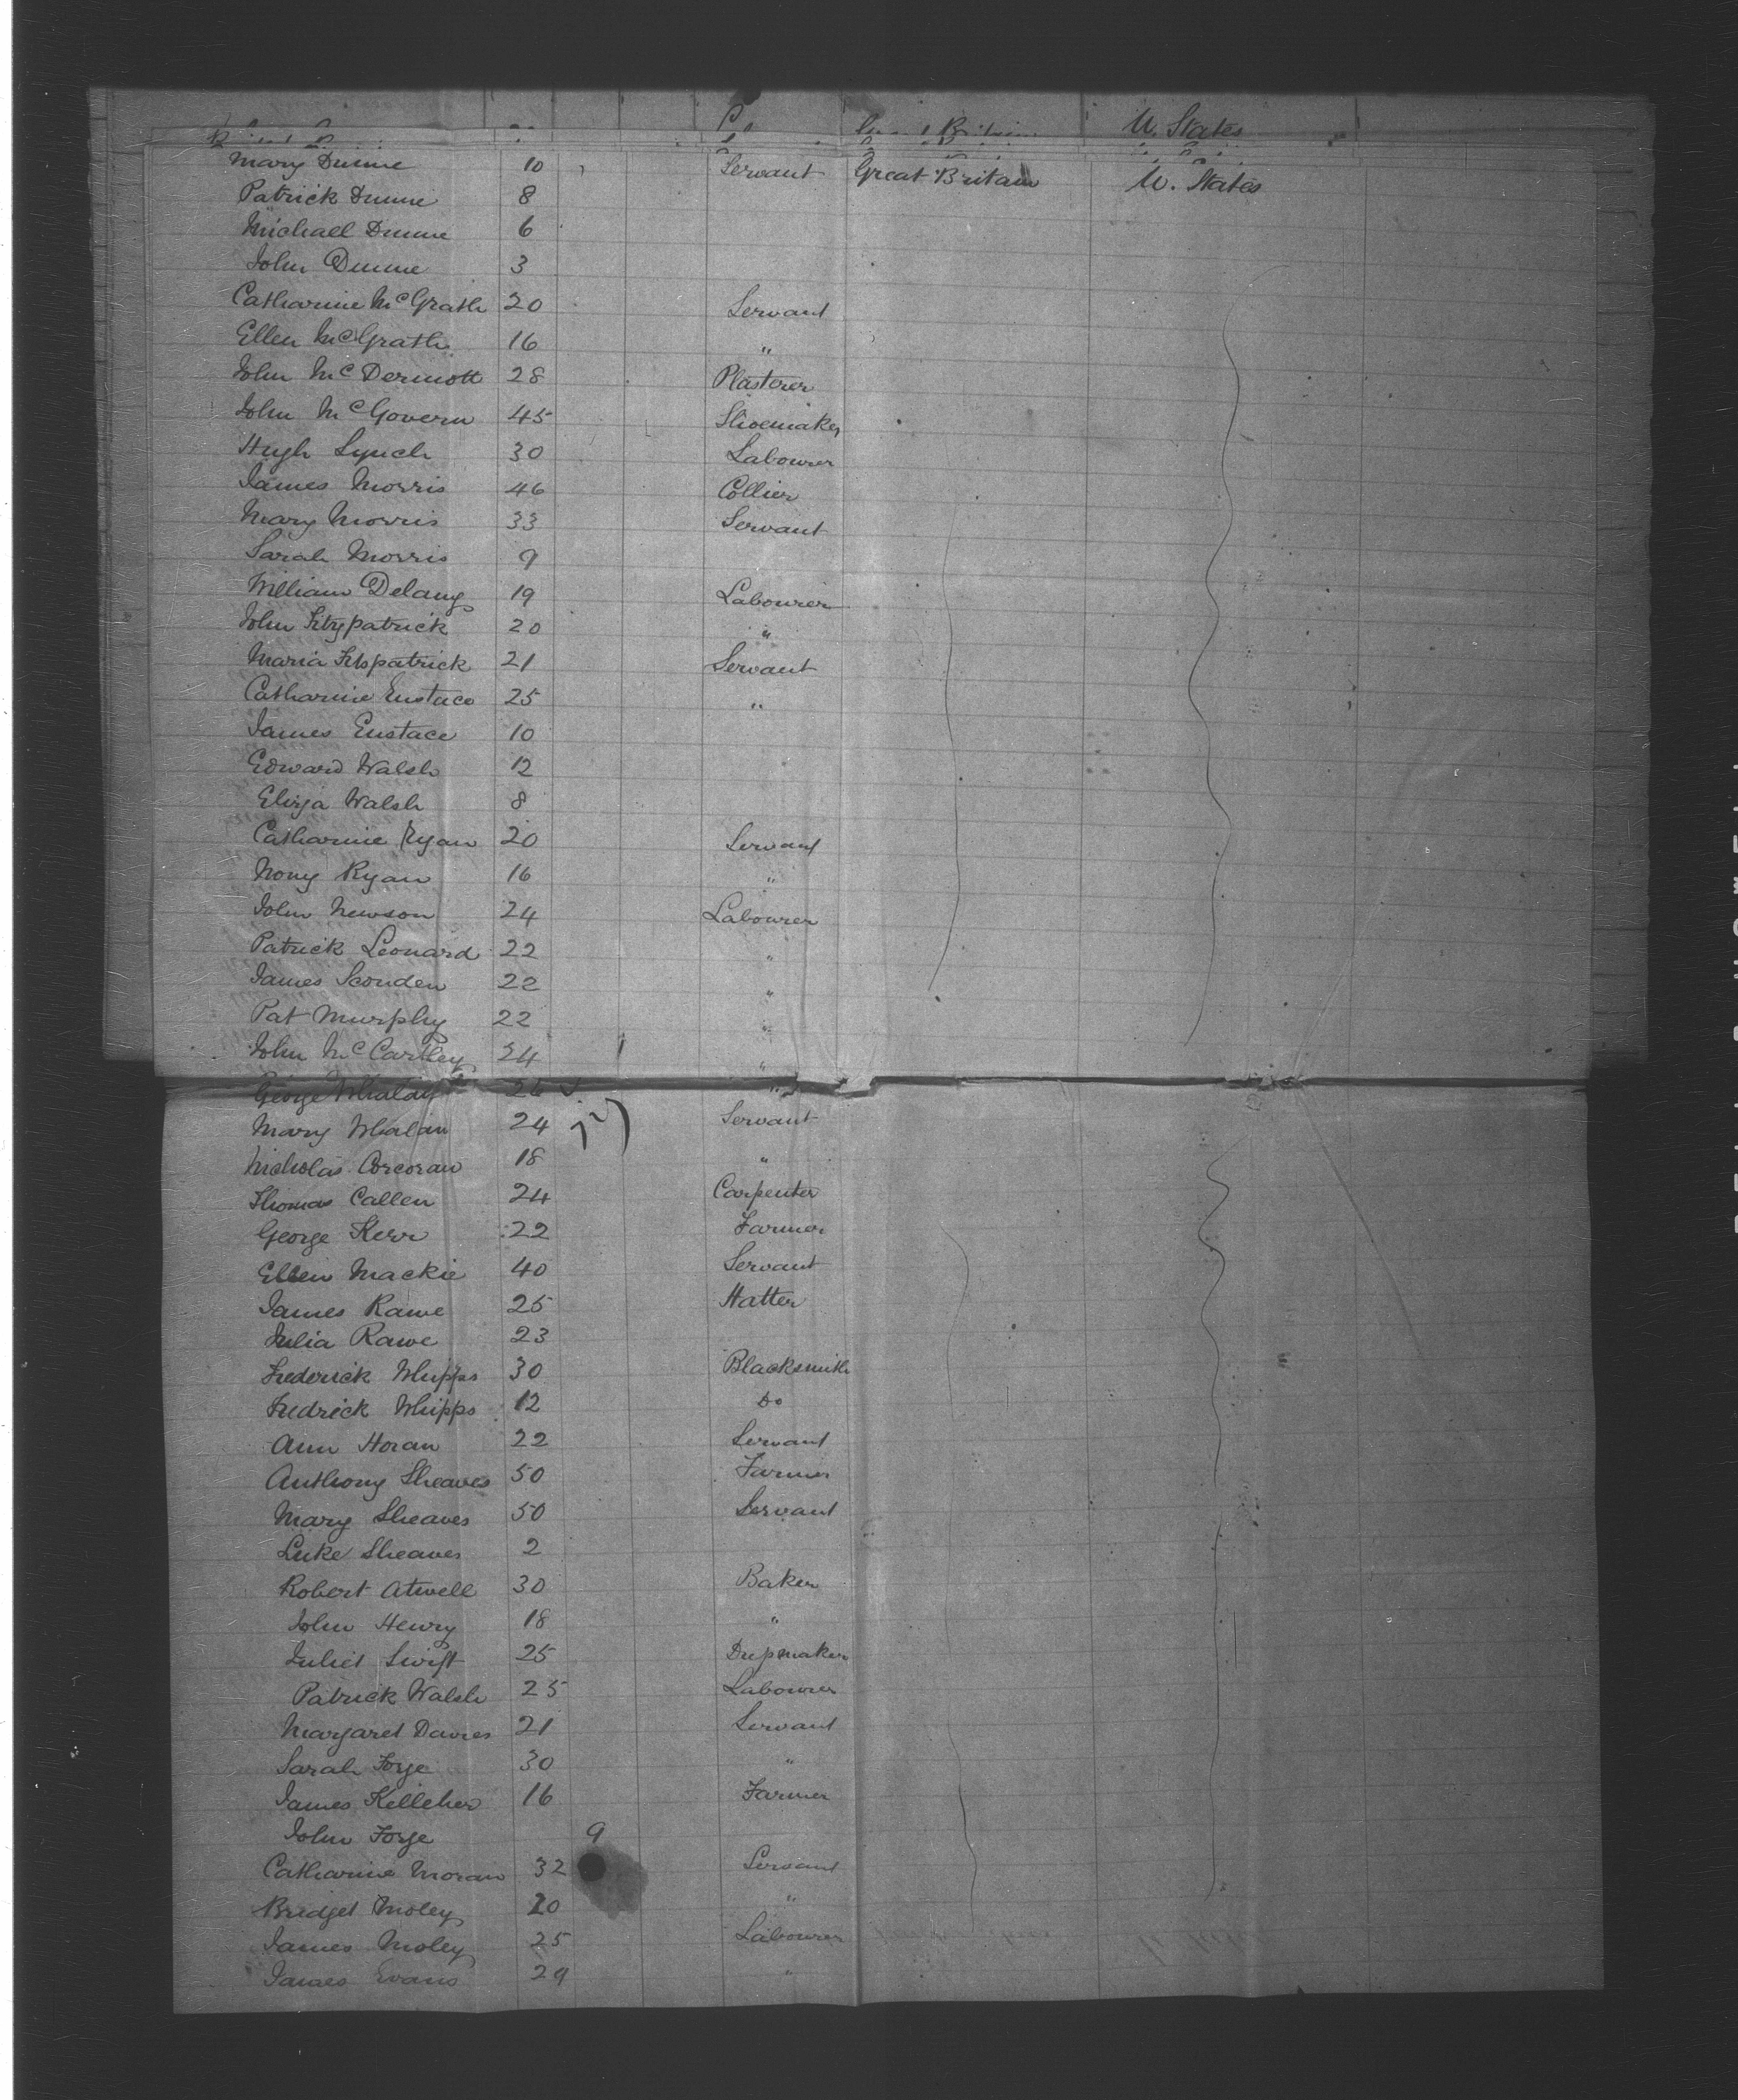 U. States
Mary Dunne 10 Servant Great Britain U. States
Patrick Dunne 8
Michael Dunne 6
John Dunne 3
Catharine McGrath 20 Servant
Ellen McGrath 16 "
John McDermott 28 Plasterer
John McGovern 45 Shoemaker
Hugh Lynch 30 Labourer
James Morris 46 Collier
Mary Morris 33 Servant
Sarah Morris 9
William Delany 19 Labourer
John Fitzpatrick 20 "
Maria Fitspatrick 21 Servant
Catharine Eustace 25 "
James Eustace 10
Edward Walsh 12
Eliza Walsh 8
Catharine Ryan 20 Servant
Nony Ryan 16 "
John Newson 24 Labourer
Patrick Leonard 22 "
James Sconden 22 "
Pat Murphy 22 "
John McCartley 24 "
George 26 "
Mary Whalan 24 Servant
Nicholas Corcoran 18 "
Thomas Callen 24 Carpenter
George Kerr 22 Farmer
Ellen Mackie 40 Servant
James Rawe 25 Hatter
Julia Rawe 23
Frederick Whipps 30 Blacksmith
Fredrick Whipps 12 Do
Ann Horan 22 Servant
Anthony Sheaves 50 Farmer
Mary Sheaves 50 Servant
Luke Sheaves 2
Robert Atwell 30 Baker
John Henry 18 "
Juliet Swift 25 Dressmaker
Patrick Walsh 25 Labourer
Margaret Davies 21 Servant
Sarah Forge 30 "
James Kelleher 16 Farmer
John Forge 9
Catharine Moran 32 Servant
Bridget Moley 20 "
James Moley 25 Labourer
James Evans 29 "